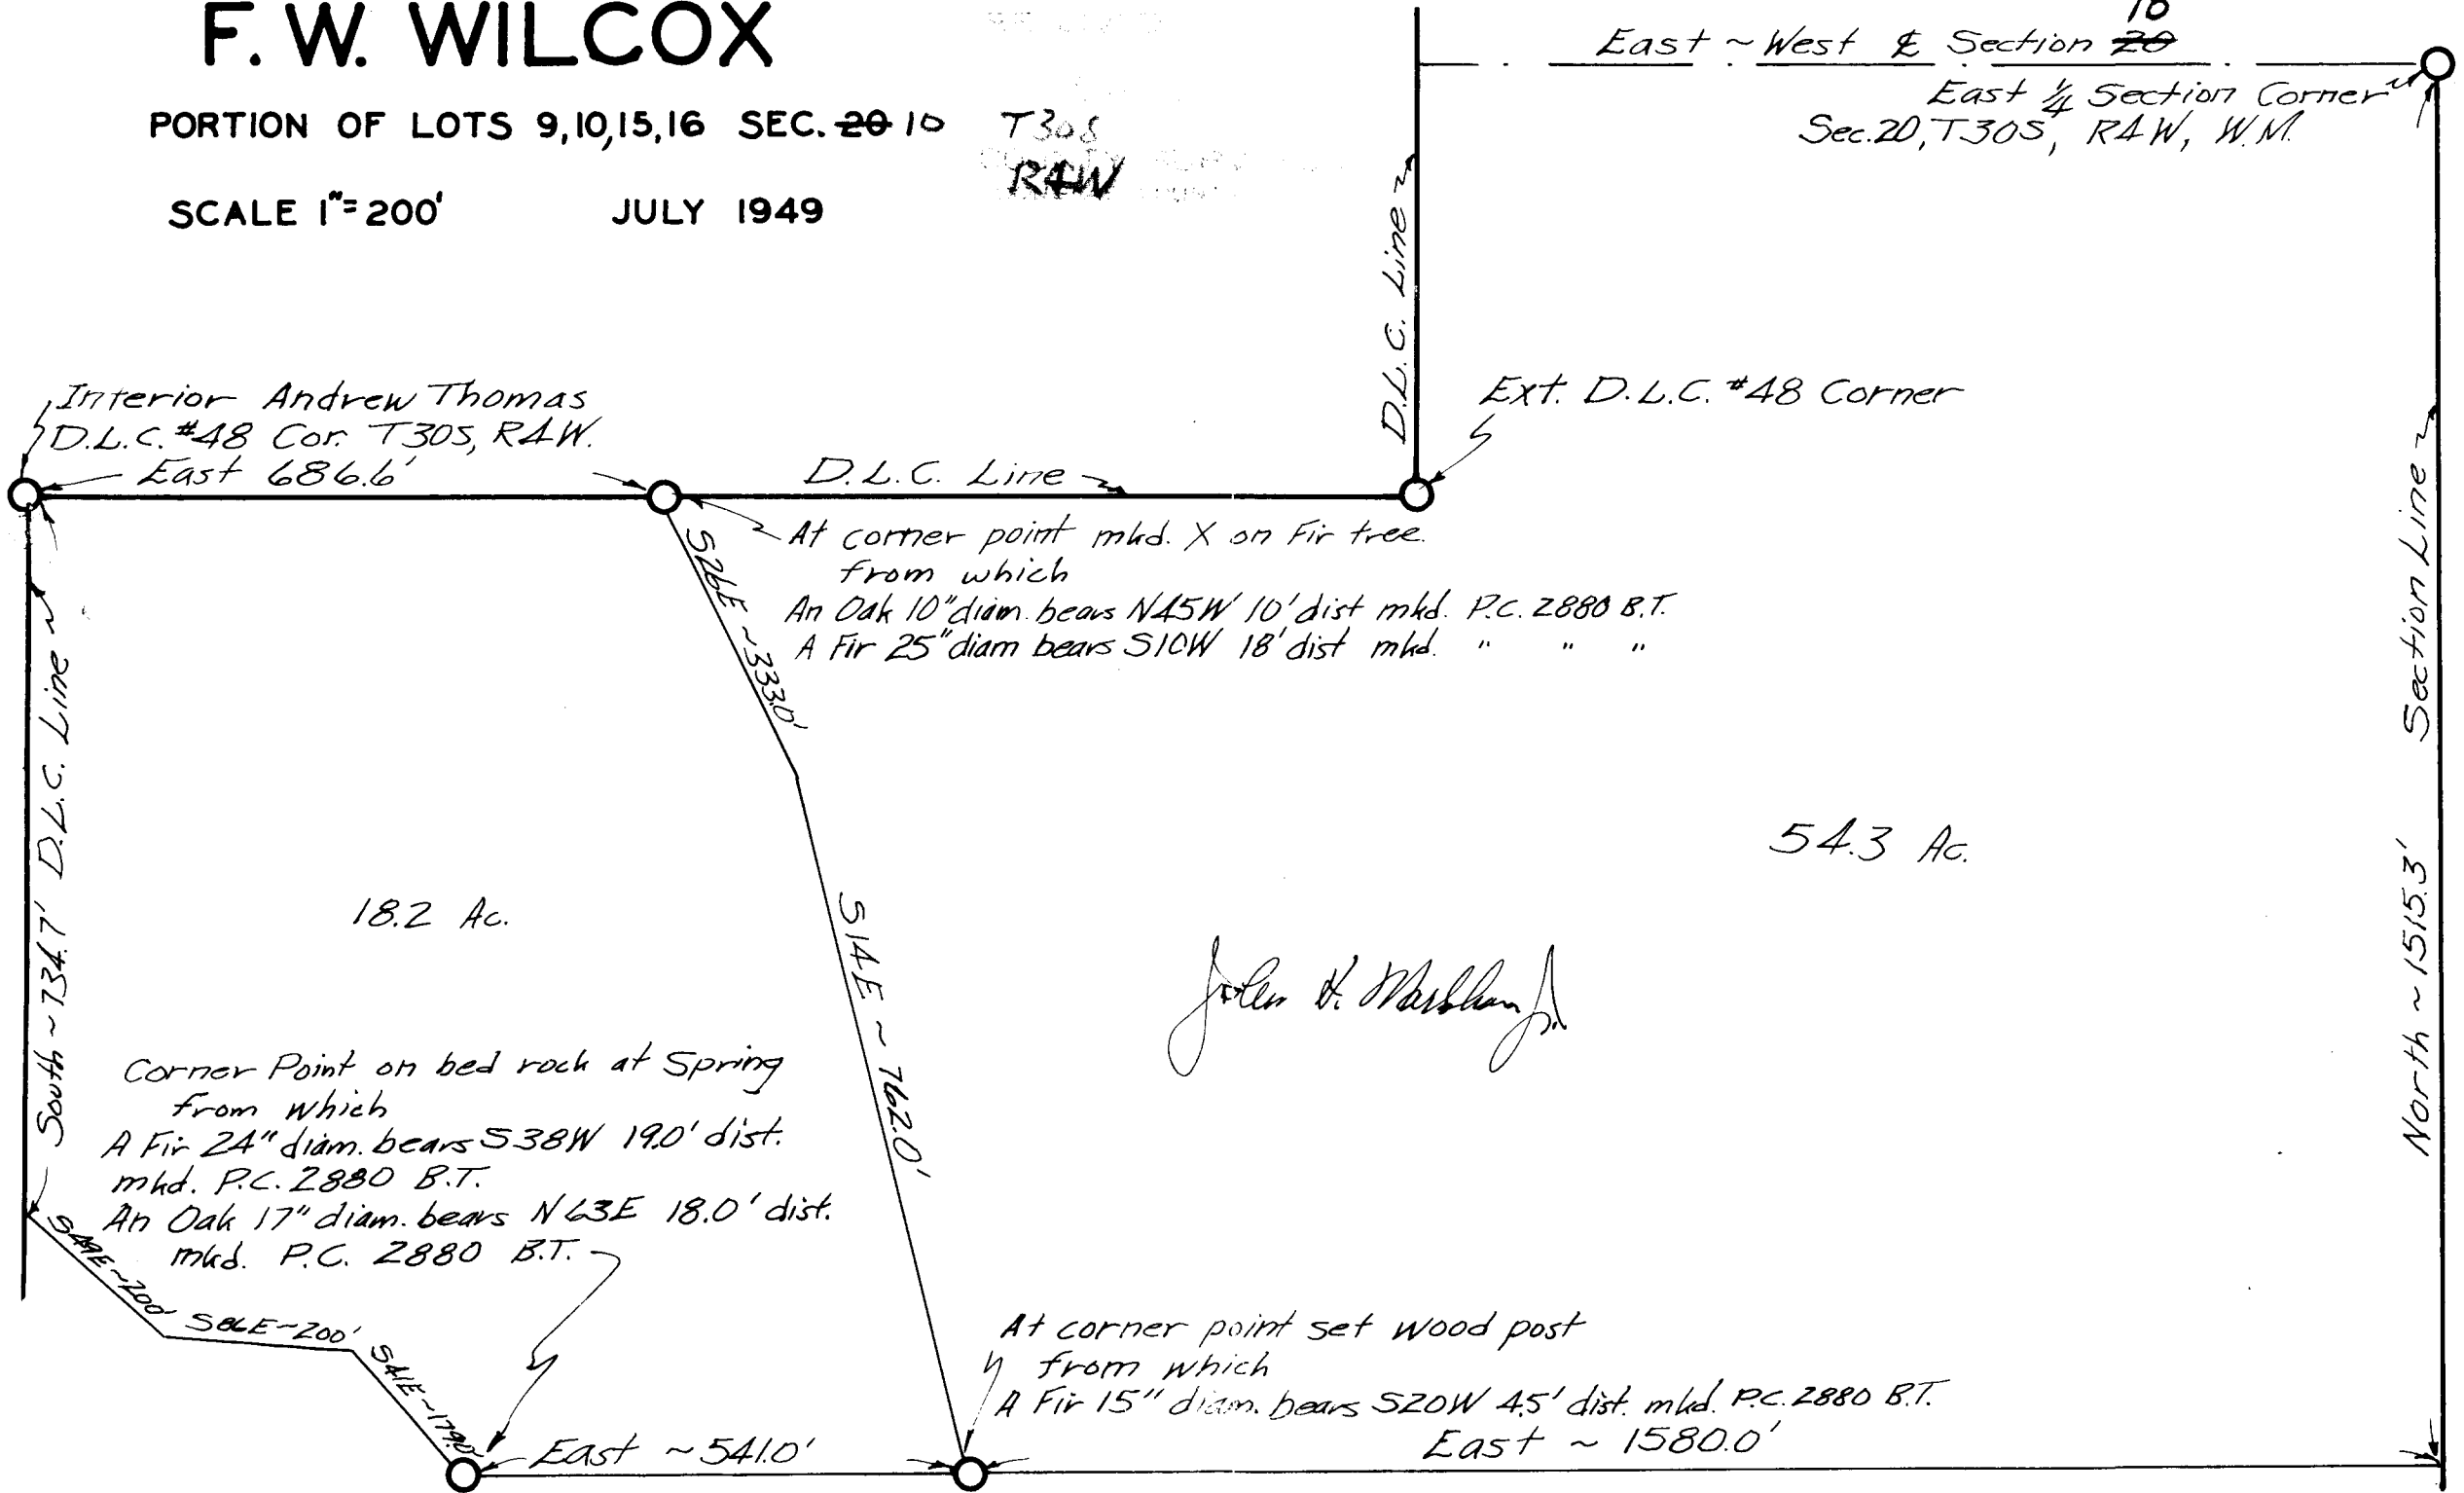 F. W. WILCOX
PORTION OF LOTS 9,10,15,16 SEC. 20 10 T30S
R4W
SCALE 1"=200' JULY 1949
10
East ~ West ℄ Section 20
East 1/4 Section Corner
Sec. 20, T30S, R4W, W.M.
D.L.C. Line
Interior Andrew Thomas
D.L.C. #48 Cor. T30S, R4W.
East 686.6'
D.L.C. Line
Ext. D.L.C. #48 Corner
Section Line
North ~ 1515.3'
At corner point mkd. X on Fir tree.
from which
An Oak 10" diam. bears N45W 10' dist mkd. P.C. 2880 B.T.
A Fir 25" diam bears S10W 18' dist mkd. " " "
S26E ~ 333.0'
D.L.C. Line
South ~ 734.7'
54.3 Ac.
18.2 Ac.
S14E ~ 762.0'
Corner Point on bed rock at Spring
from which
A Fir 24" diam. bears S38W 19.0' dist.
mkd. P.C. 2880 B.T.
An Oak 17" diam. bears N63E 18.0' dist.
mkd. P.C. 2880 B.T.
S49E ~ 200'
S86E ~ 200'
S41E ~ 179.0'
At corner point set wood post
from which
A Fir 15" diam. bears S20W 4.5' dist. mkd. P.C. 2880 B.T.
East ~ 541.0'
East ~ 1580.0'